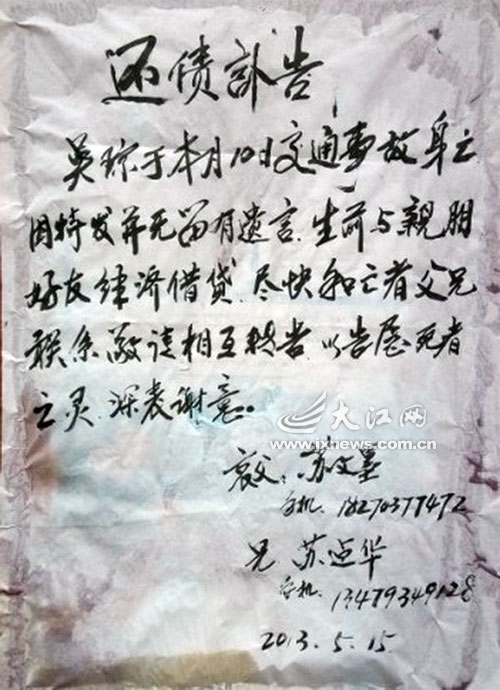 还债讣告
吴琼于本月10日交通事故身亡
因特发并无留有遗言.生前与親朋
好友经济借贷.尽快和亡者父兄
联系敬请相互转告.以告慰死者
亡灵.深表谢意。
大江网
www.jxnews.com.cn
哀父:苏文
手机.18270377472
兄 苏点华
手机.13479349128
2013.5.15